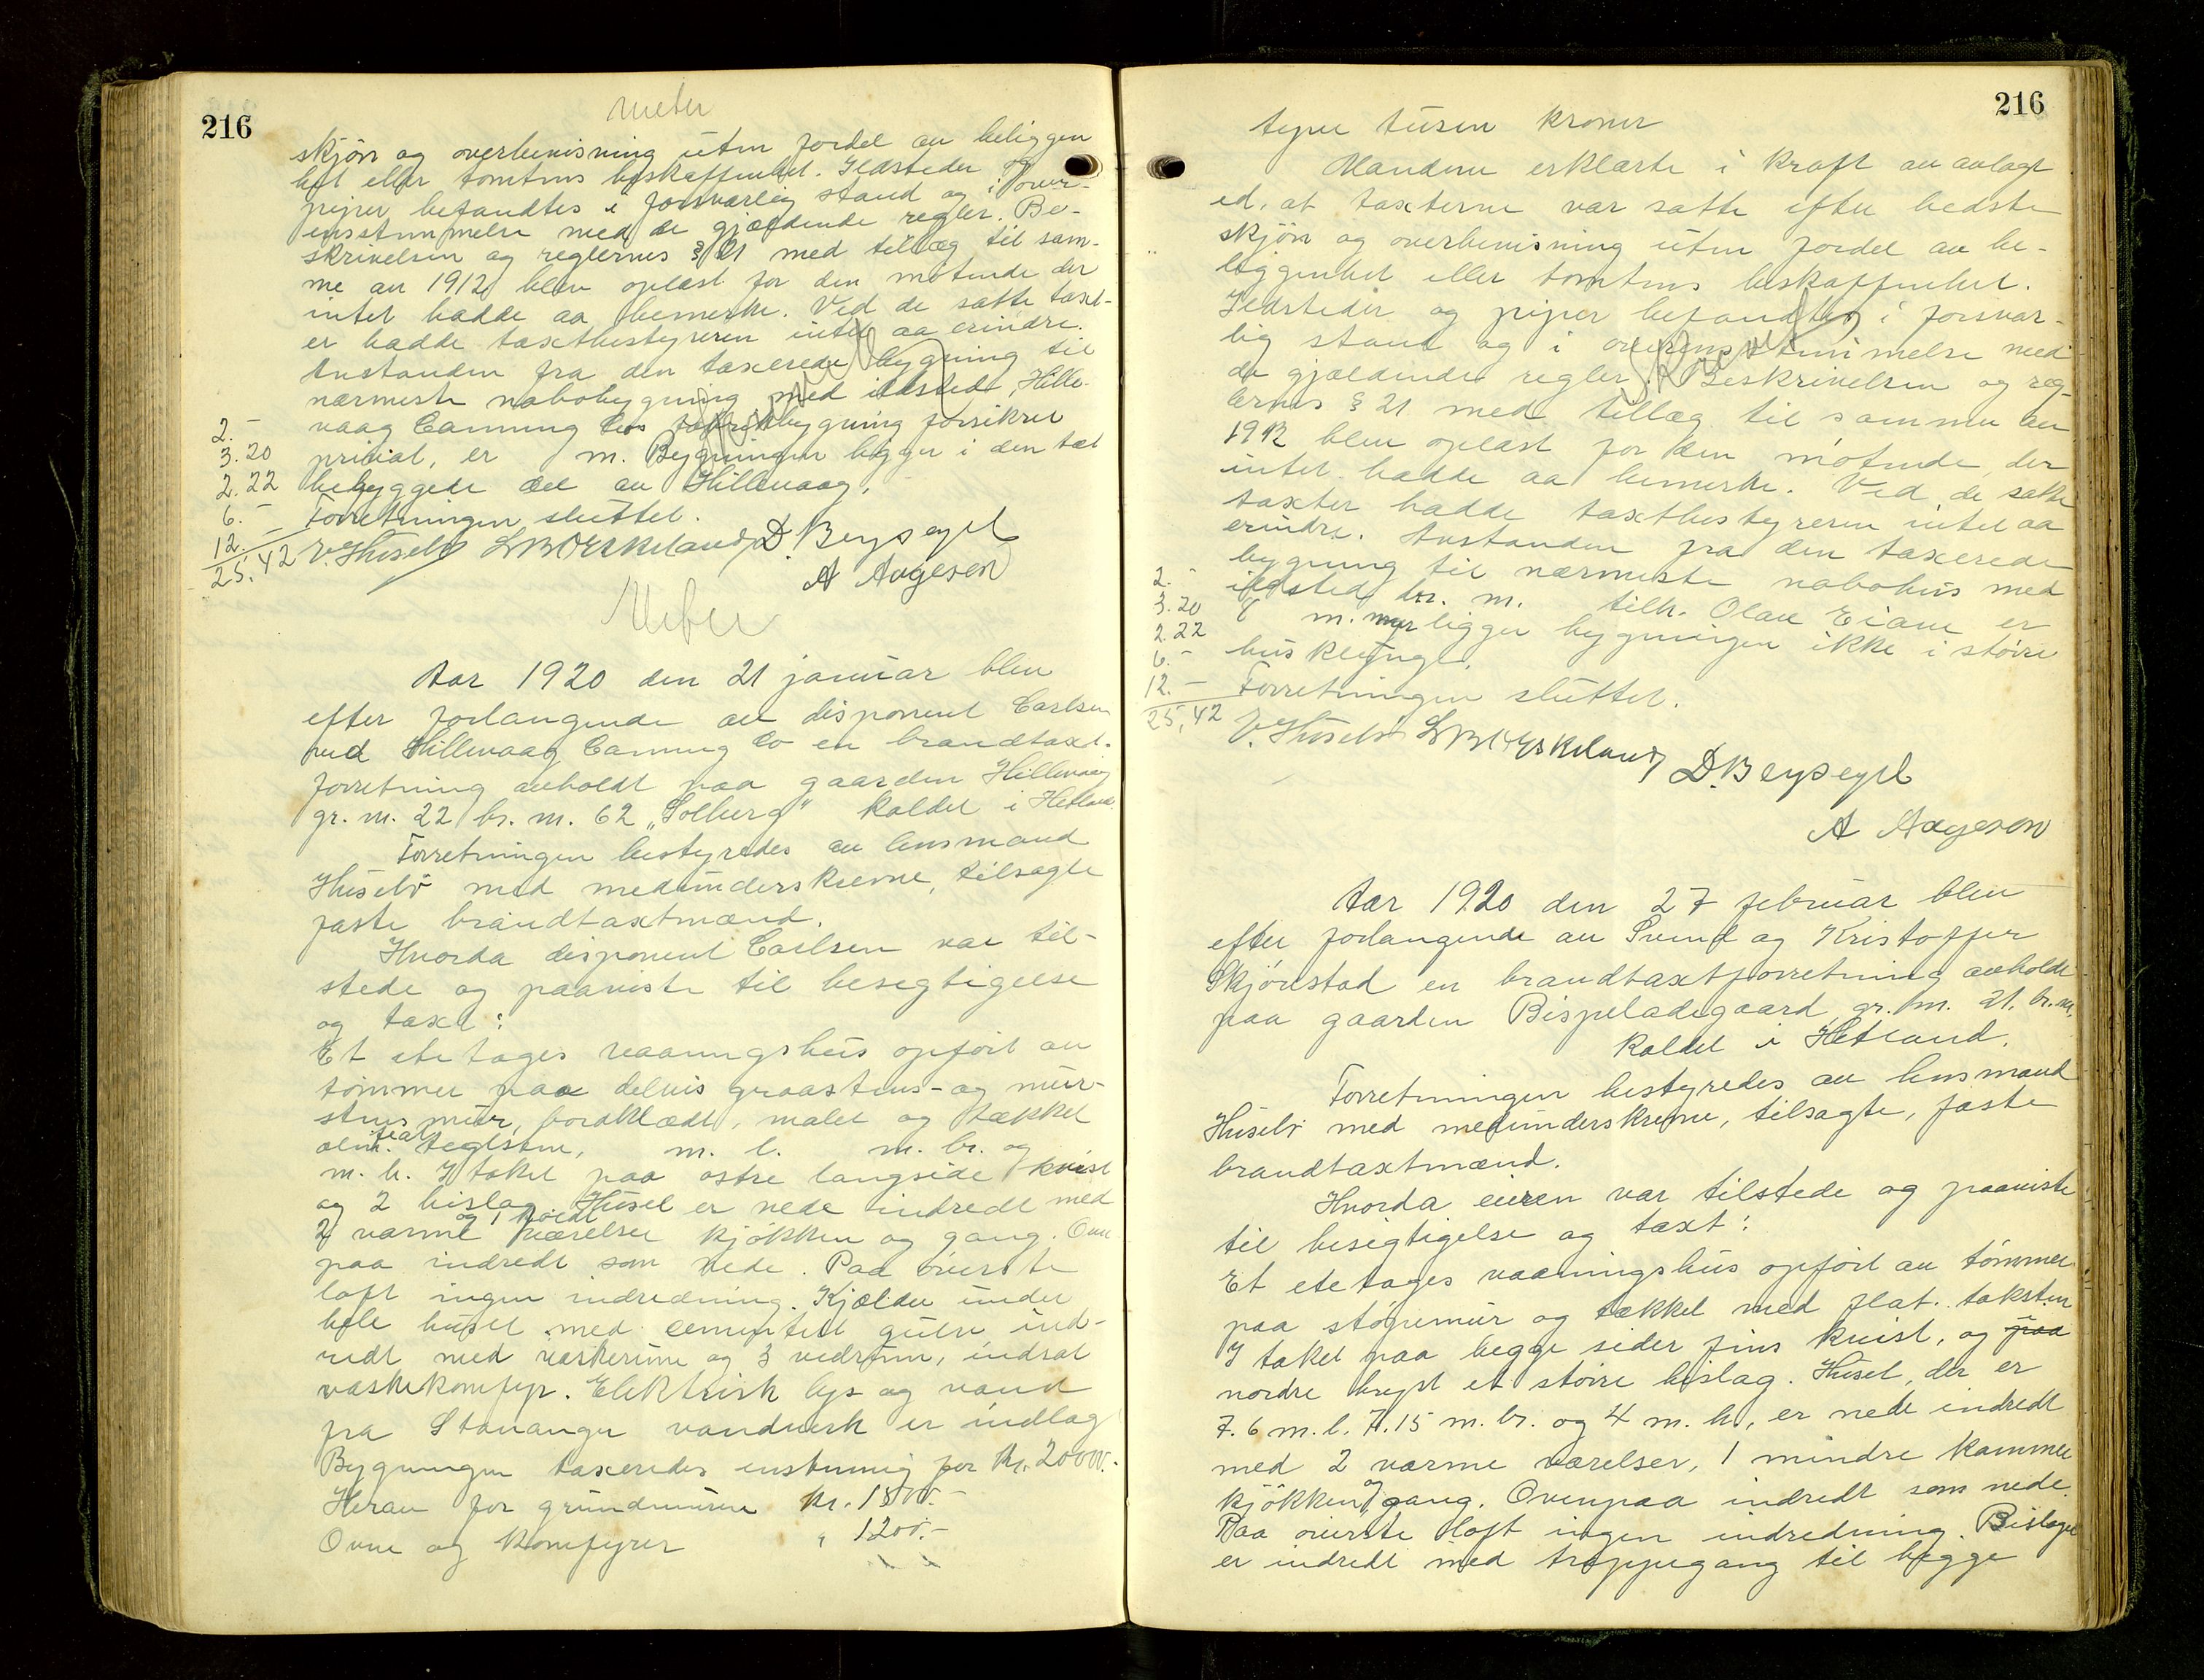 216
skjön og overbevisning uten fordel av beliggen
het eller tomtens beskaffenhet. Ildsteder og
piper befandtes i forsvarlig stand og i over-
ensstemmelse med de gjældende regler. Be-
skrivelsen og reglernes § 21 med tillæg til sam-
me av 1912 blev oplæst for den mötende der
intet hadde aa bemerke. Ved de satte taxt-
er hadde taxtbestyreren intet aa erindre.
Avstanden fra den taxerede bygning til
nærmeste nabobygning med ildsted, Hille-
vaag Canning Cos fabrikbygning forsikret
privat, er m. Bygningen ligger i den tæt
bebyggede del av Hillevaag.
Forretningen sluttet.
2.-
3.20
2.22
6.-
12.-
25.42
V. Husebö D. Bergsagel
A Aagesen
Aar 1920 den 21 januar blev
efter forlangende av disponent Carlsen
ved Hillevaag Canning Co en brandtaxt-
forretning avholdt paa gaarden Hillevaag
gr. nr. 22 br. nr. 62 „Solberg" kaldet i Hetland.
Forretningen bestyredes av lensmand
Husebö med medunderskrevne, tilsagte
faste brandtaxtmænd.
Hvorda disponent Carlsen var til-
stede og paaviste til besegtigelse
og taxt:
Et etetages vaaningshus opfört av
tömmer paa delvis graastens- og mur-
stens mur, bordklædt, malet og tækket
alm. flat teglsten, m. l. m. br. og
m. h. I taket paa östre langside kvist
og 2 bislag. Huset er nede indredt med
2 varme og 1 koldt værelser kjökken og gang. Oven
paa indredt som nede. Paa överste
loft ingen indredning. Kjælder under
hele huset med cementert gulv ind-
redt med vaskerum og 3 vedrum, indsat
vaskekomfyr. Elektrisk lys og vand
fra Stavanger vandverk er indlag
Bygningen taxeredes enstemmig for kr. 20000.-
Herav for grundmuren kr. 1500.-
Ovne og komfyrer " 1200.-
216
tyve tusen kroner
Mændene erklærte i kraft av avlagt
ed, at taxterne var satte efter bedste
skjön og overbevisning uten fordel av be-
liggenhet eller tomtens beskaffenhet.
Ildsteder og piper befandtes i forsvar-
lig stand og i overensstemmelse med
de gjældende regler. Beskrivelsen og reg-
lernes § 21 med tillæg til samme av
1912 blev oplæst for den mötende der
intet hadde aa bemerke. Ved de satte
taxter hadde taxtbestyreren intet aa
erindre. Avstanden fra den taxerede
bygning til nærmeste nabohus med
ildsted br. nr. tilh. Olav Eiane er
m. ligger bygningen ikke i större
husklynge.
Forretningen sluttet.
2.-
3.20
2.22
6.-
12.-
25,42
V. Husebö D. Bergsagel
A Aagesen
Aar 1920 den 27 februar blev
efter forlangende av Svend og Kristoffer
Skjörestad en brandtaxtforretning avholdt
paa gaarden Bispeladegaard gr. nr. 21. br. nr.
kaldet i Hetland.
Forretningen bestyredes av lensmand
Husebö med medunderskrevne, tilsagte, faste
brandtaxtmænd.
Hvorda eieren var tilstede og paaviste
til besigtigelse og taxt:
Et etetages vaaningshus opfört av tömmer
paa stöpemur og tækket med flat. taksten
I taket paa begge sider fins kvist, og paa
nordre bryst et större bislag. Huset, der er
7.6 m. l. 7.15 m. br. og 4 m. h., er nede indredt
med 2 varme værelser, 1 mindre kammer
kjökken og gang. Ovenpaa indredt som nede.
Paa överste loft ingen indredning. Bislaget
er indredt med trappegang til begge